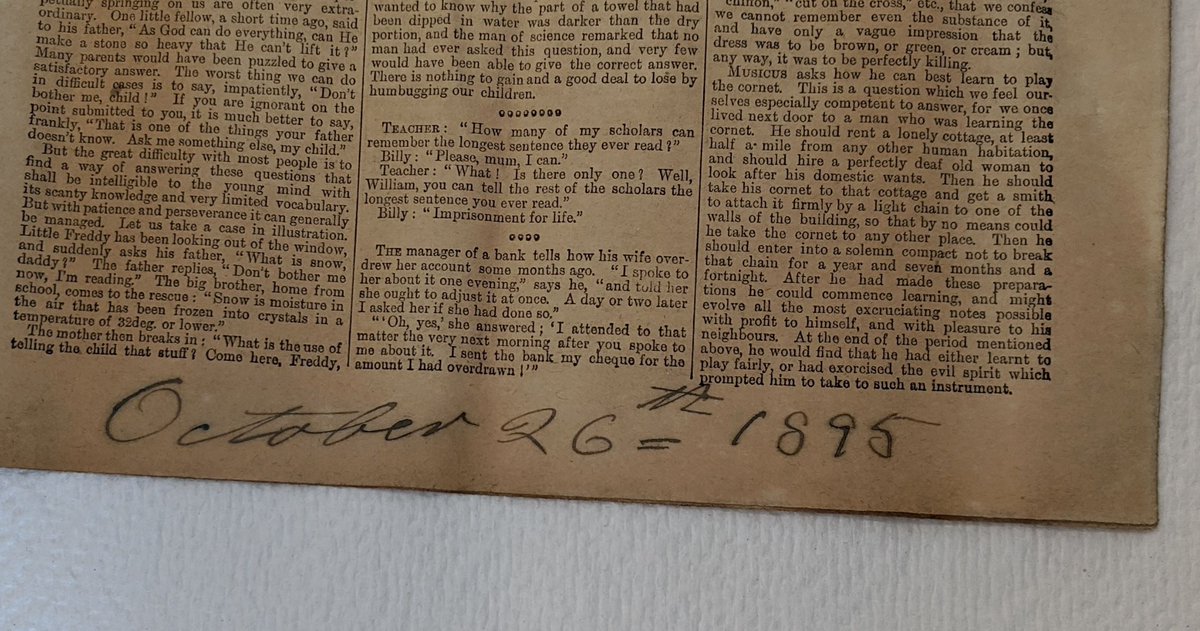 petually springing on us are often very extra-
ordinary. One little fellow, a short time ago, said
to his father, "As God can do everything, can He
make a stone so heavy that He can't lift it?"
Many parents would have been puzzled to give a
satisfactory answer. The worst thing we can do
in difficult cases is to say, impatiently, "Don't
bother me, child!" If you are ignorant on the
point submitted to you, it is much better to say,
frankly, "That is one of the things your father
doesn't know. Ask me something else, my child."
But the great difficulty with most people is to
find a way of answering these questions that
shall be intelligible to the young mind with
its scanty knowledge and very limited vocabulary.
But with patience and perseverance it can generally
be managed. Let us take a case in illustration.
Little Freddy has been looking out of the window,
and suddenly asks his father, "What is snow,
daddy?" The father replies, "Don't bother me
now, I'm reading." The big brother, home from
school, comes to the rescue: "Snow is moisture in
the air that has been frozen into crystals in a
temperature of 32deg. or lower."
The mother then breaks in: "What is the use of
telling the child that stuff? Come here, Freddy,
wanted to know why the part of a towel that had
been dipped in water was darker than the dry
portion, and the man of science remarked that no
man had ever asked this question, and very few
would have been able to give the correct answer.
There is nothing to gain and a good deal to lose by
humbugging our children.
TEACHER: "How many of my scholars can
remember the longest sentence they ever read?"
Billy: "Please, mum, I can."
Teacher: "What! Is there only one? Well,
William, you can tell the rest of the scholars the
longest sentence you ever read."
Billy: "Imprisonment for life."
THE manager of a bank tells how his wife over-
drew her account some months ago. "I spoke to
her about it one evening," says he, "and told her
she ought to adjust it at once. A day or two later
I asked her if she had done so."
"'Oh, yes,' she answered; 'I attended to that
matter the very next morning after you spoke to
me about it. I sent the bank my cheque for the
amount I had overdrawn!'"
"cut on the cross," etc., that we confess
we cannot remember even the substance of it,
and have only a vague impression that the
dress was to be brown, or green, or cream; but,
any way, it was to be perfectly killing.
MUSICUS asks how he can best learn to play
the cornet. This is a question which we feel our-
selves especially competent to answer, for we once
lived next door to a man who was learning the
cornet. He should rent a lonely cottage, at least
half a mile from any other human habitation,
and should hire a perfectly deaf old woman to
look after his domestic wants. Then he should
take his cornet to that cottage and get a smith
to attach it firmly by a light chain to one of the
walls of the building, so that by no means could
he take the cornet to any other place. Then he
should enter into a solemn compact not to break
that chain for a year and seven months and a
fortnight. After he had made these prepara-
tions he could commence learning, and might
evolve all the most excruciating notes possible
with profit to himself, and with pleasure to his
neighbours. At the end of the period mentioned
above, he would find that he had either learnt to
play fairly, or had exorcised the evil spirit which
prompted him to take to such an instrument.
October 26th 1895